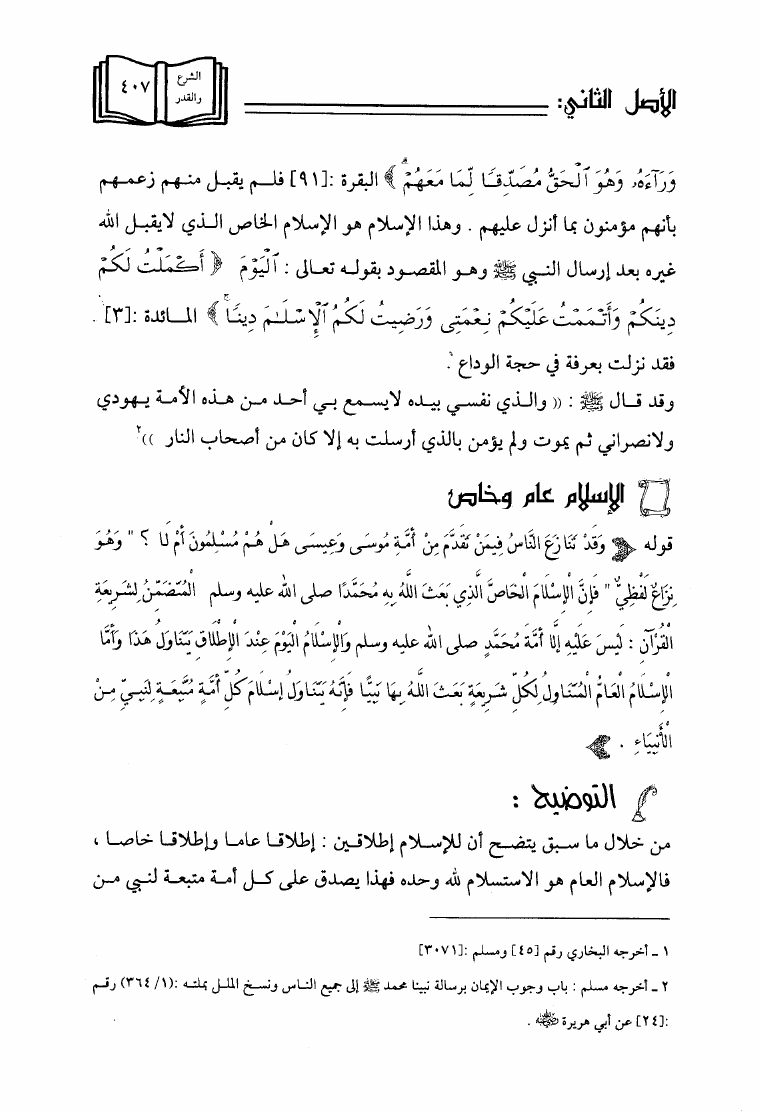 الأصل الثاني:
الشرع والقدر
٤٠٧
وَرَآءَهُۥ وَهُوَ ٱلْحَقُّ مُصَدِّقًا لِّمَا مَعَهُمْ ۗ﴾ البقرة :[٩١] فلــم يقبــل منــهم زعمــهم
بأنهم مؤمنون بما أنزل عليهم . وهذا الإسلام هو الإسلام الخاص الــذي لايقبــل الله
غيره بعد إرسال النــبي ﷺ وهــو المقصــود بقولــه تعــالى : ﴿ ٱلْيَوْمَ أَكْمَلْتُ لَكُمْ
دِينَكُمْ وَأَتْمَمْتُ عَلَيْكُمْ نِعْمَتِى وَرَضِيتُ لَكُمُ ٱلْإِسْلَـٰمَ دِينًا ۚ﴾ المــائدة :[٣] .
فقد نزلت بعرفة في حجة الوداع ١.
وقد قــال ﷺ : (( والــذي نفســي بيــده لايســمع بــي أحــد مــن هــذه الأمــة يــهودي
ولانصراني ثم يموت ولم يؤمن بالذي أرسلت به إلا كان من أصحاب النار ))٢
الإسلام عام وخاص
قوله وَقَدْ تَنَازَعَ النَّاسُ فِيمَنْ تَقَدَّمَ مِنْ أُمَّةِ مُوسَى وَعِيسَى هَلْ هُمْ مُسْلِمُونَ أَمْ لَا ؟ " وَهُوَ
نِزَاعٌ لَفْظِيٌّ " فَإِنَّ الْإِسْلَامَ الْخَاصَّ الَّذِي بَعَثَ اللَّهُ بِهِ مُحَمَّدًا صلى الله عليه وسلم الْمُتَضَمِّنُ لِشَرِيعَةِ
الْقُرْآنِ : لَيْسَ عَلَيْهِ إلَّا أُمَّةُ مُحَمَّدٍ صلى الله عليه وسلم وَالْإِسْلَامُ الْيَوْمَ عِنْدَ الْإِطْلَاقِ يَتَنَاوَلُ هَذَا وَأَمَّا
الْإِسْلَامُ الْعَامُّ الْمُتَنَاوِلُ لِكُلِّ شَرِيعَةٍ بَعَثَ اللَّهُ بِهَا نَبِيًّا فَإِنَّهُ يَتَنَاوَلُ إسْلَامَ كُلِّ أُمَّةٍ مُتَّبِعَةٍ لِنَبِيٍّ مِنْ
الْأَنْبِيَاءِ .
التوضيح :
من خلال ما سبق يتضــح أن للإســلام إطلاقــين : إطلاقــا عامــا وإطلاقــا خاصــا ،
فالإسلام العام هو الاستسلام لله وحده فهذا يصدق على كــل أمــة متبعــة لنــبي مــن
١ ـ أخرجه البخاري رقم [٤٥] ومسلم :[٣٠٧١]
٢ ـ أخرجه مسلم : باب وجوب الإيمان برسالة نبينا محمد ﷺ إلى جميع النــاس ونســخ الملــل بملتــه :(٣٦٤/١) رقــم
:[٢٤] عن أبي هريرة رضي الله عنه .